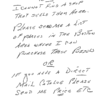 I CANNOT FIND A SHOP
THAT SELLS THEIR AREA.
PLEASE EMAIL ME A LIST
OF PLACES IN THE BOSTON
AREA WHERE I CAN
PURCHASE THIS BRAND
OR
IF YOU HAVE A DIRECT
MAIL CATALOG PLEASE
SEND ME PRICE ETC.